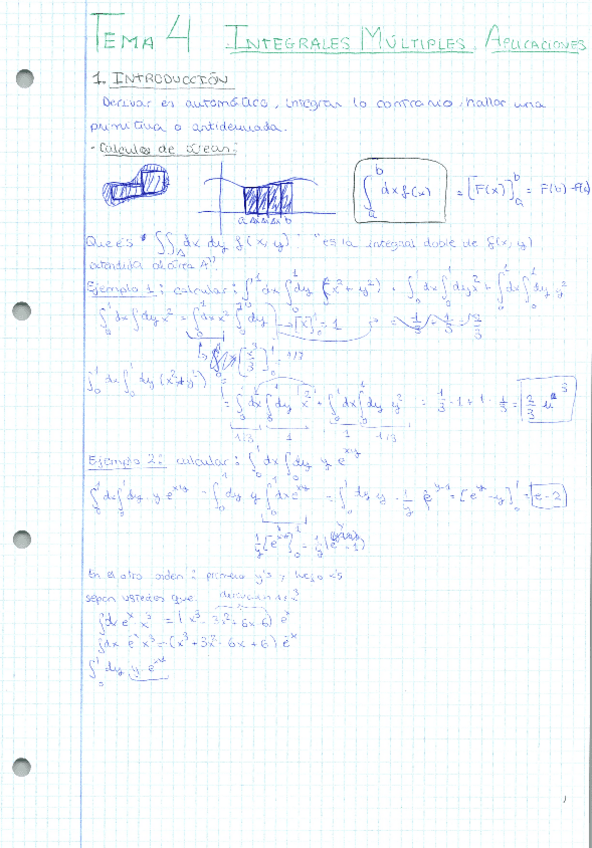 TEMA 4 INTEGRALES MÚLTIPLES. APLICACIONES
1. INTRODUCCIÓN
Derivar es automático, integrar lo contrario, hallar una
primitiva o antiderivada.
- Cálculos de áreas:
∫_a^b dx f(x) = [F(x)]_a^b = F(b) - F(a)
a b
Que es ∬_A dx dy f(x, y) "es la integral doble de f(x, y)
extendida al área A".
Ejemplo 1: calcular: ∫_0^1 dx ∫_0^1 dy (x² + y²) = ∫_0^1 dx ∫_0^1 dy x² + ∫_0^1 dx ∫_0^1 dy y²
∫_0^1 dx ∫_0^1 dy x² = ∫_0^1 dx x² ∫_0^1 dy → [x]_0^1 = 1
[x³/3]_0^1 = 1/3
∫_0^1 dx ∫_0^1 dy (x² + y²) =
= ∫_0^1 dx ∫_0^1 dy x² + ∫_0^1 dx ∫_0^1 dy y² = 1/3 · 1 + 1 · 1/3 = 2/3
1/3 1 1 1/3
Ejemplo 2: calcular: ∫_0^1 dx ∫_0^1 dy y e^{xy}
∫_0^1 dx ∫_0^1 dy y e^{xy} = ∫_0^1 dy y ∫_0^1 dx e^{xy} = ∫_0^1 dy y · 1/y = [e^y - y]_0^1 = e - 2
En el otro orden: primero y's y luego x's
sepan ustedes que
∫dx e^x x³ = (x³ - 3x² + 6x 6) e^x
∫dx e^x x³ = (x³ + 3x² 6x + 6) e^x
∫_0^1 dy y e^{xy}
1